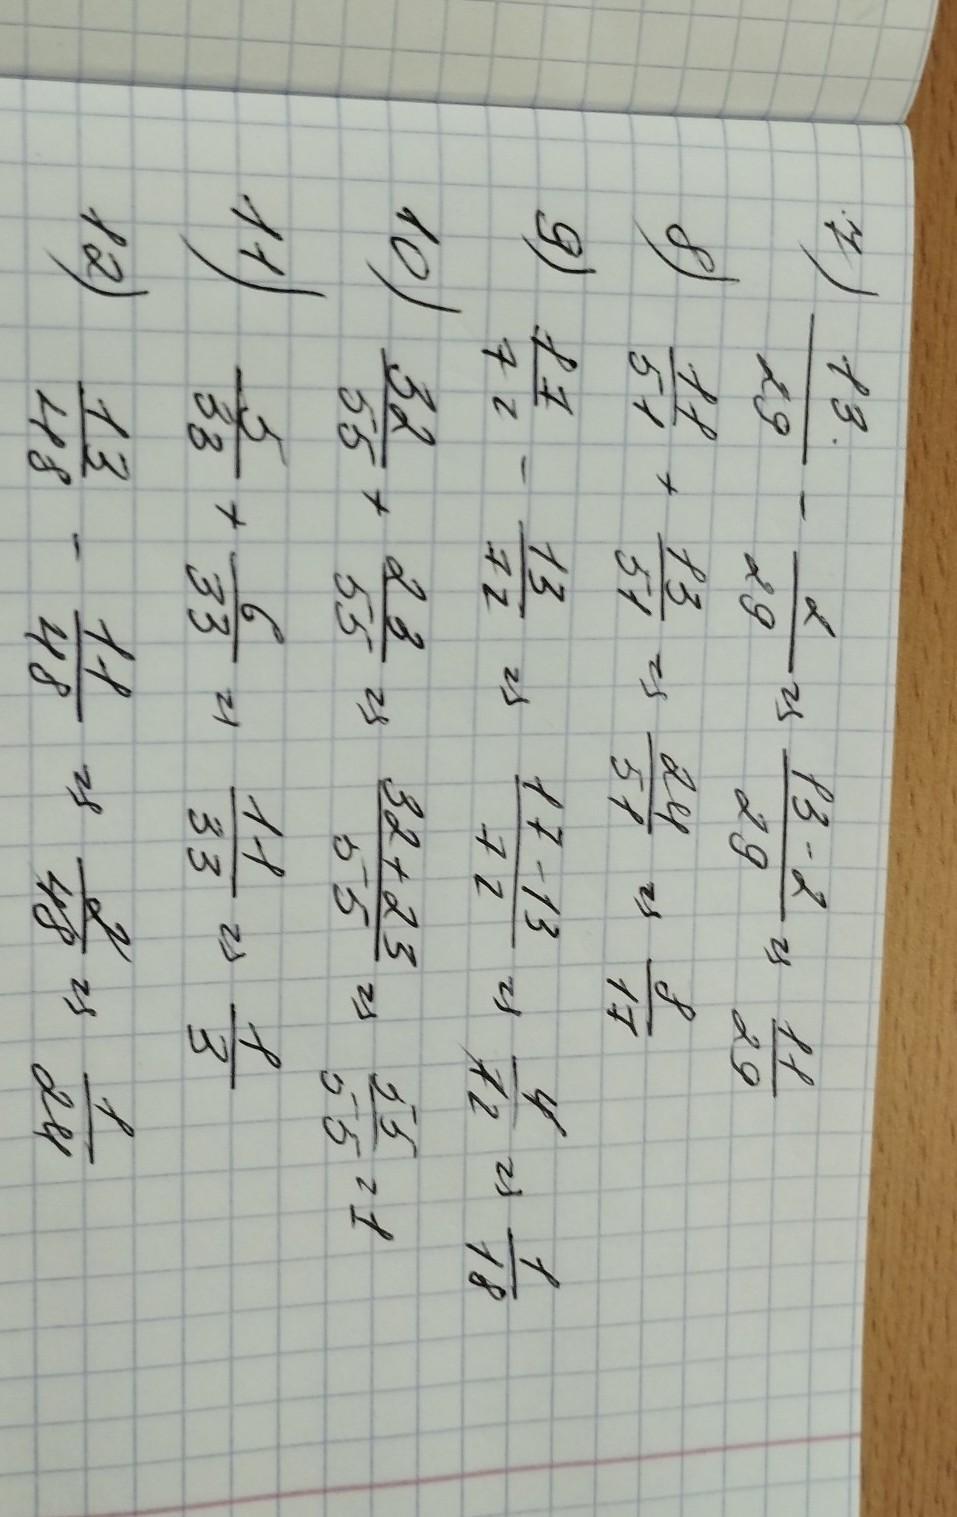 7) 13/29 - 2/29 = 13-2/29 = 11/29
8) 11/51 + 13/51 = 24/51 = 8/17
9) 17/72 - 13/72 = 17-13/72 = 4/72 = 1/18
10) 32/55 + 23/55 = 32+23/55 = 55/55 = 1
11) 5/33 + 6/33 = 11/33 = 1/3
12) 13/48 - 11/48 = 2/48 = 1/24